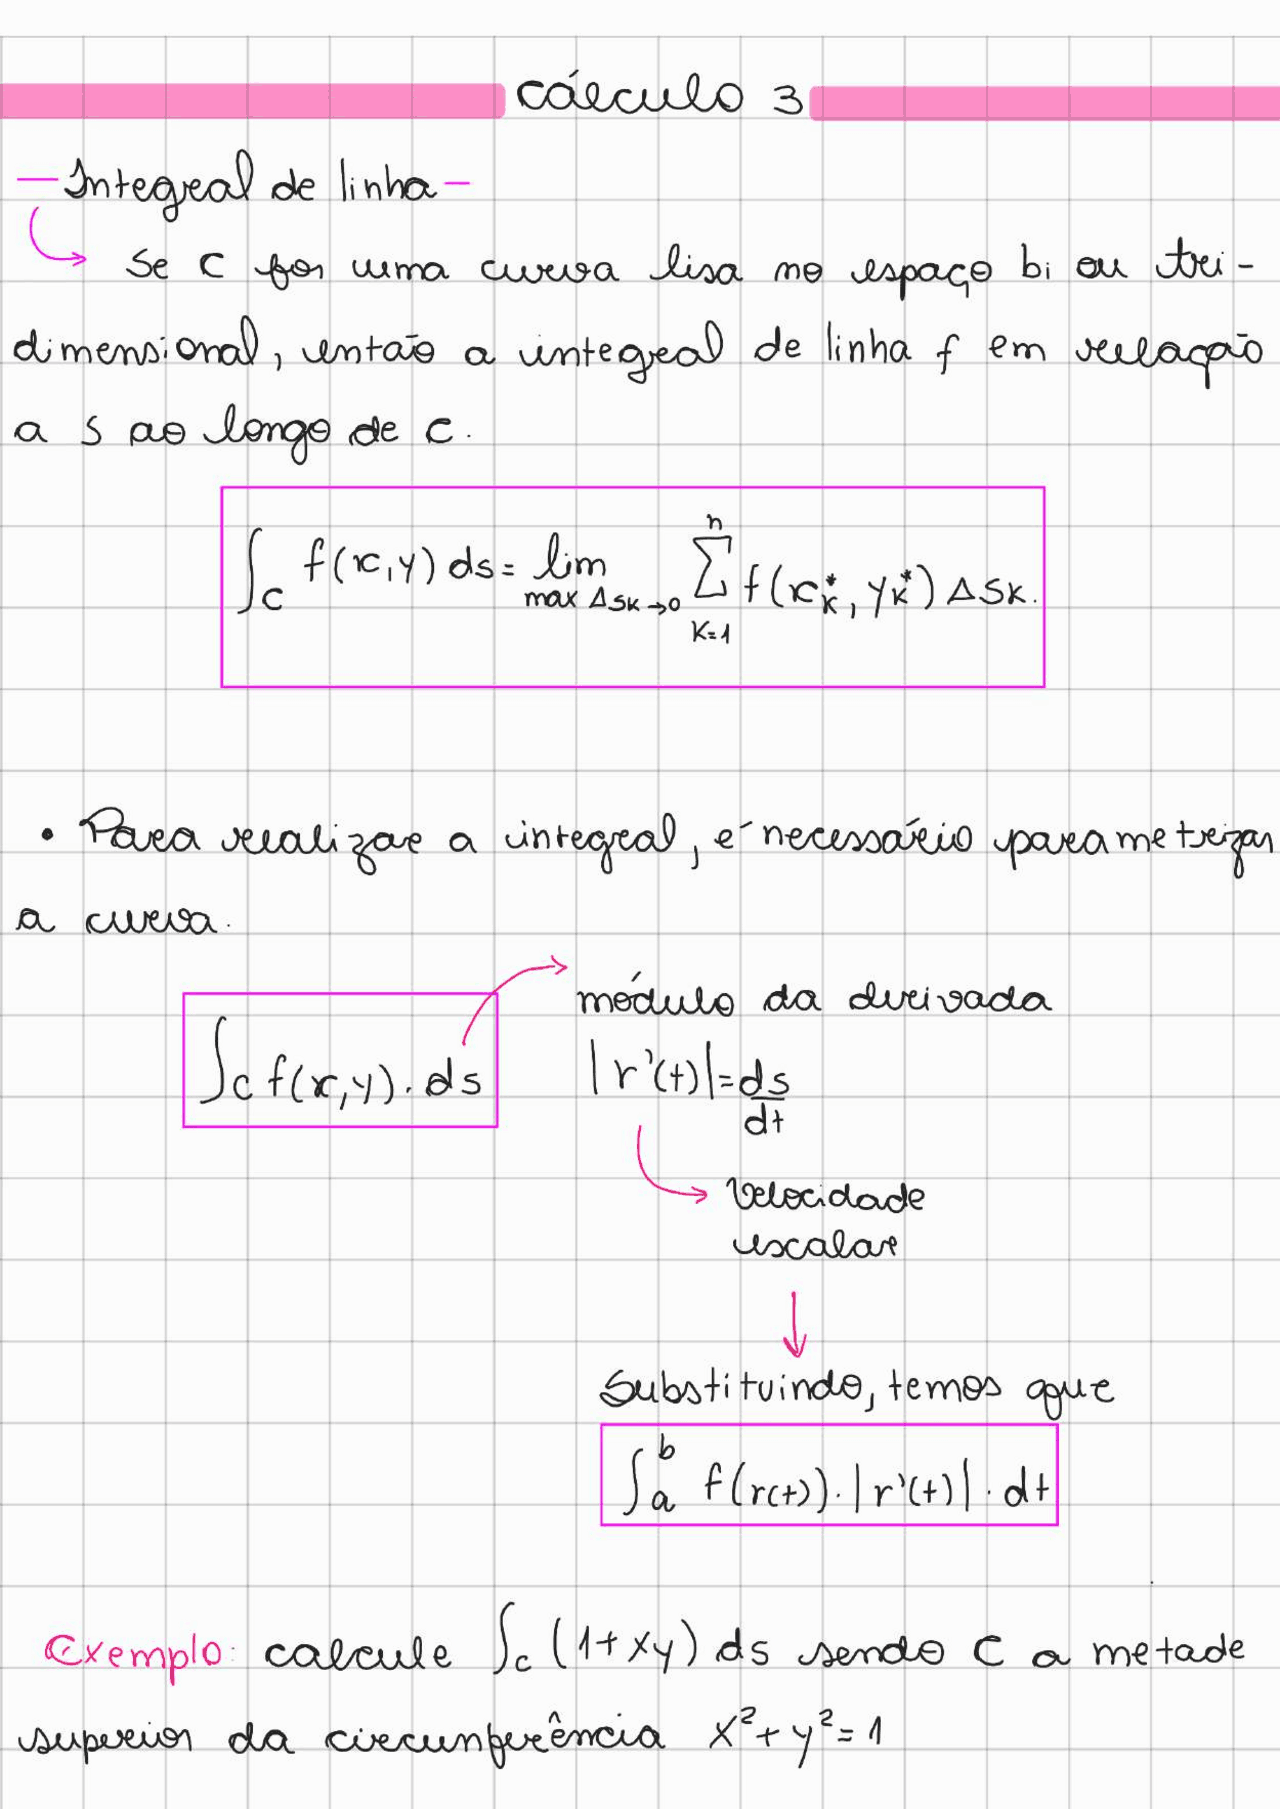 Cálculo 3
— Integral de linha —
Se C for uma curva lisa no espaço bi ou tri-
dimensional, então a integral de linha f em relação
a s ao longo de C.
∫_C f(x,y) ds = lim_{max Δsk→0} Σ_{k=1}^{n} f(x*_k, y*_k) Δsk.
• Para realizar a integral, é necessário parametrizar
a curva.
módulo da derivada
∫_C f(x,y). ds |r'(t)| = ds/dt
velocidade
escalar
Substituindo, temos que
∫_a^b f(r(t)).|r'(t)|.dt
Exemplo: calcule ∫_C (1+xy) ds sendo C a metade
superior da circunferência x²+y²=1